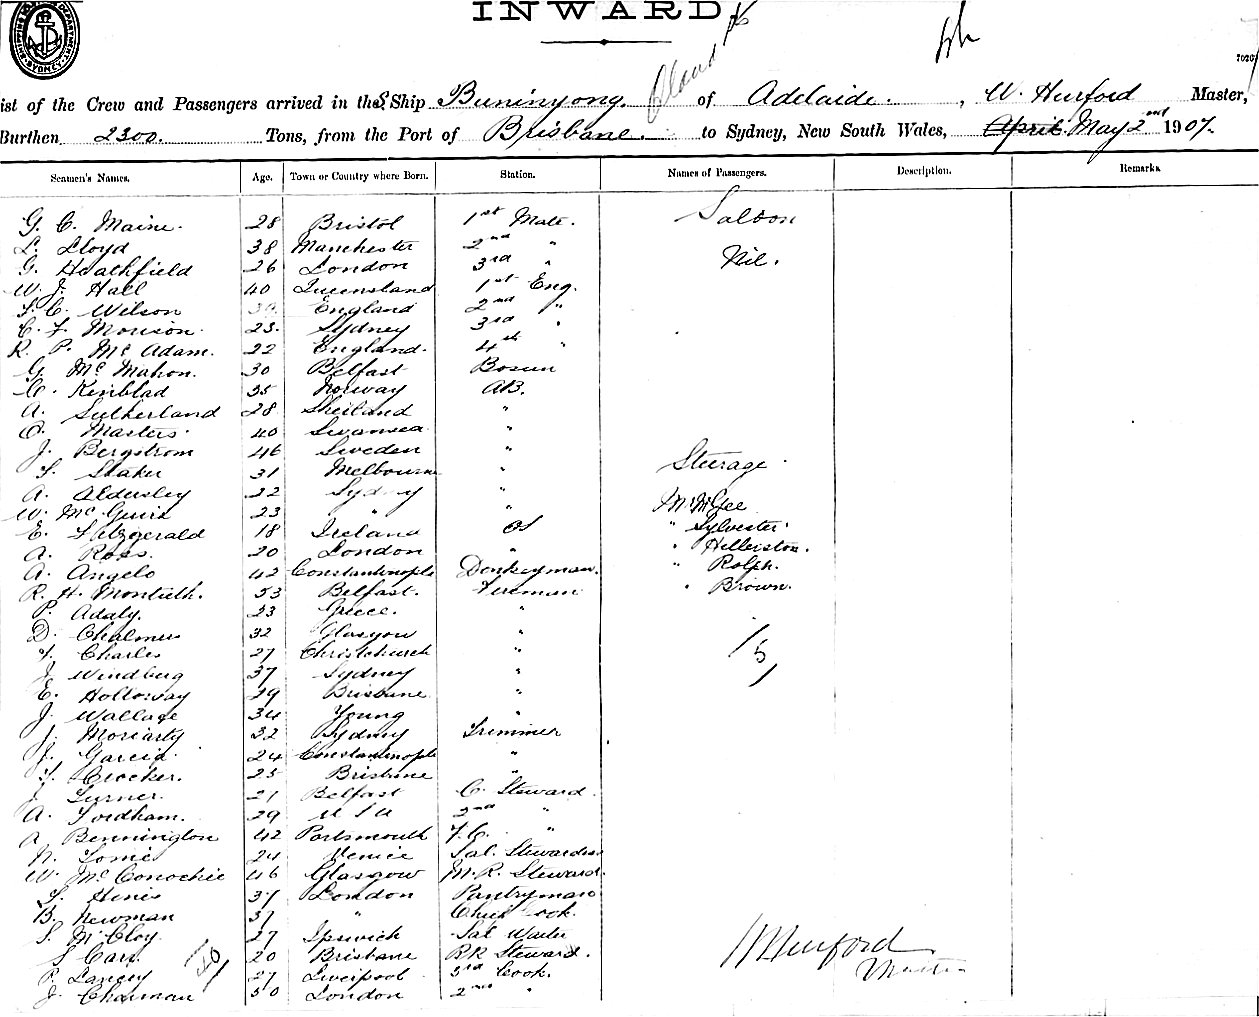 INWARD
SHIPPING DEPARTMENT SYDNEY
ist of the Crew and Passengers arrived in the S Ship Buninyong of Adelaide, W. Hurford Master,
Burthen 2300 Tons, from the Port of Brisbane to Sydney, New South Wales, April May 2nd 1907.
Seamen's Names. Age. Town or Country where Born. Station. Names of Passengers. Description. Remarks
G. C. Maine. 28 Bristol 1st Mate. Saloon
L. Lloyd 38 Manchester 2nd "
G. Heathfield 26 London 3rd " Nil.
W. J. Hall 40 Queensland 1st Eng.
S. C. Wilson England 2nd "
C. F. Morison. 23. Sydney 3rd "
R. P. McAdam. 22 England. 4st "
G. McMahon. 30 Belfast Bosun
Kinblad 35 Norway AB.
A. Sutherland 28 Shetland "
O. Masters 40 Swansea "
J. Bergstrom 46 Sweden "
S. Slaker 31 Melbourne " Steerage
A. Aldersley 22 Sydney "
W. McGuire 23 " " Mr McGee
E. Fitzgerald 18 Ireland OS " Sylvester
A. Ross. 20 London " " Hellerston.
A. Angelo 42 Constantinople Donkeyman. " Rolph.
R. H. Montieth. 33 Belfast. Fireman " Brown.
P. Adaly. 23 Greece. "
D. Chalmers 32 Glasgow "
Charles 27 Christchurch " /5/
J. Windberg 37 Sydney "
E. Holloway 29 Brisbane "
J. Wallace 34 Young "
J. Moriarty 32 Sydney Trimmer
J. Garcia 24 Constantinople "
Crocker. 25 Brisbane "
J. Turner. 21 Belfast C. Steward.
A. Fordham. 29 U S A 2nd "
A. Bennington 42 Portsmouth F.C. "
N. Tomic 24 Venice Sal. Stewardess
W. McConochie 46 Glasgow M.R. Steward.
S. Hines 37 London Pantryman
B. Newman 37 " Chief Cook.
S. McCloy. 27 Ipswich Sal Waiter
S Carr. 20 Brisbane BR Steward.
P. Lancey 27 Liverpool 3rd Cook.
J. Charman 50 London 2nd "
40
W Hurford
Master